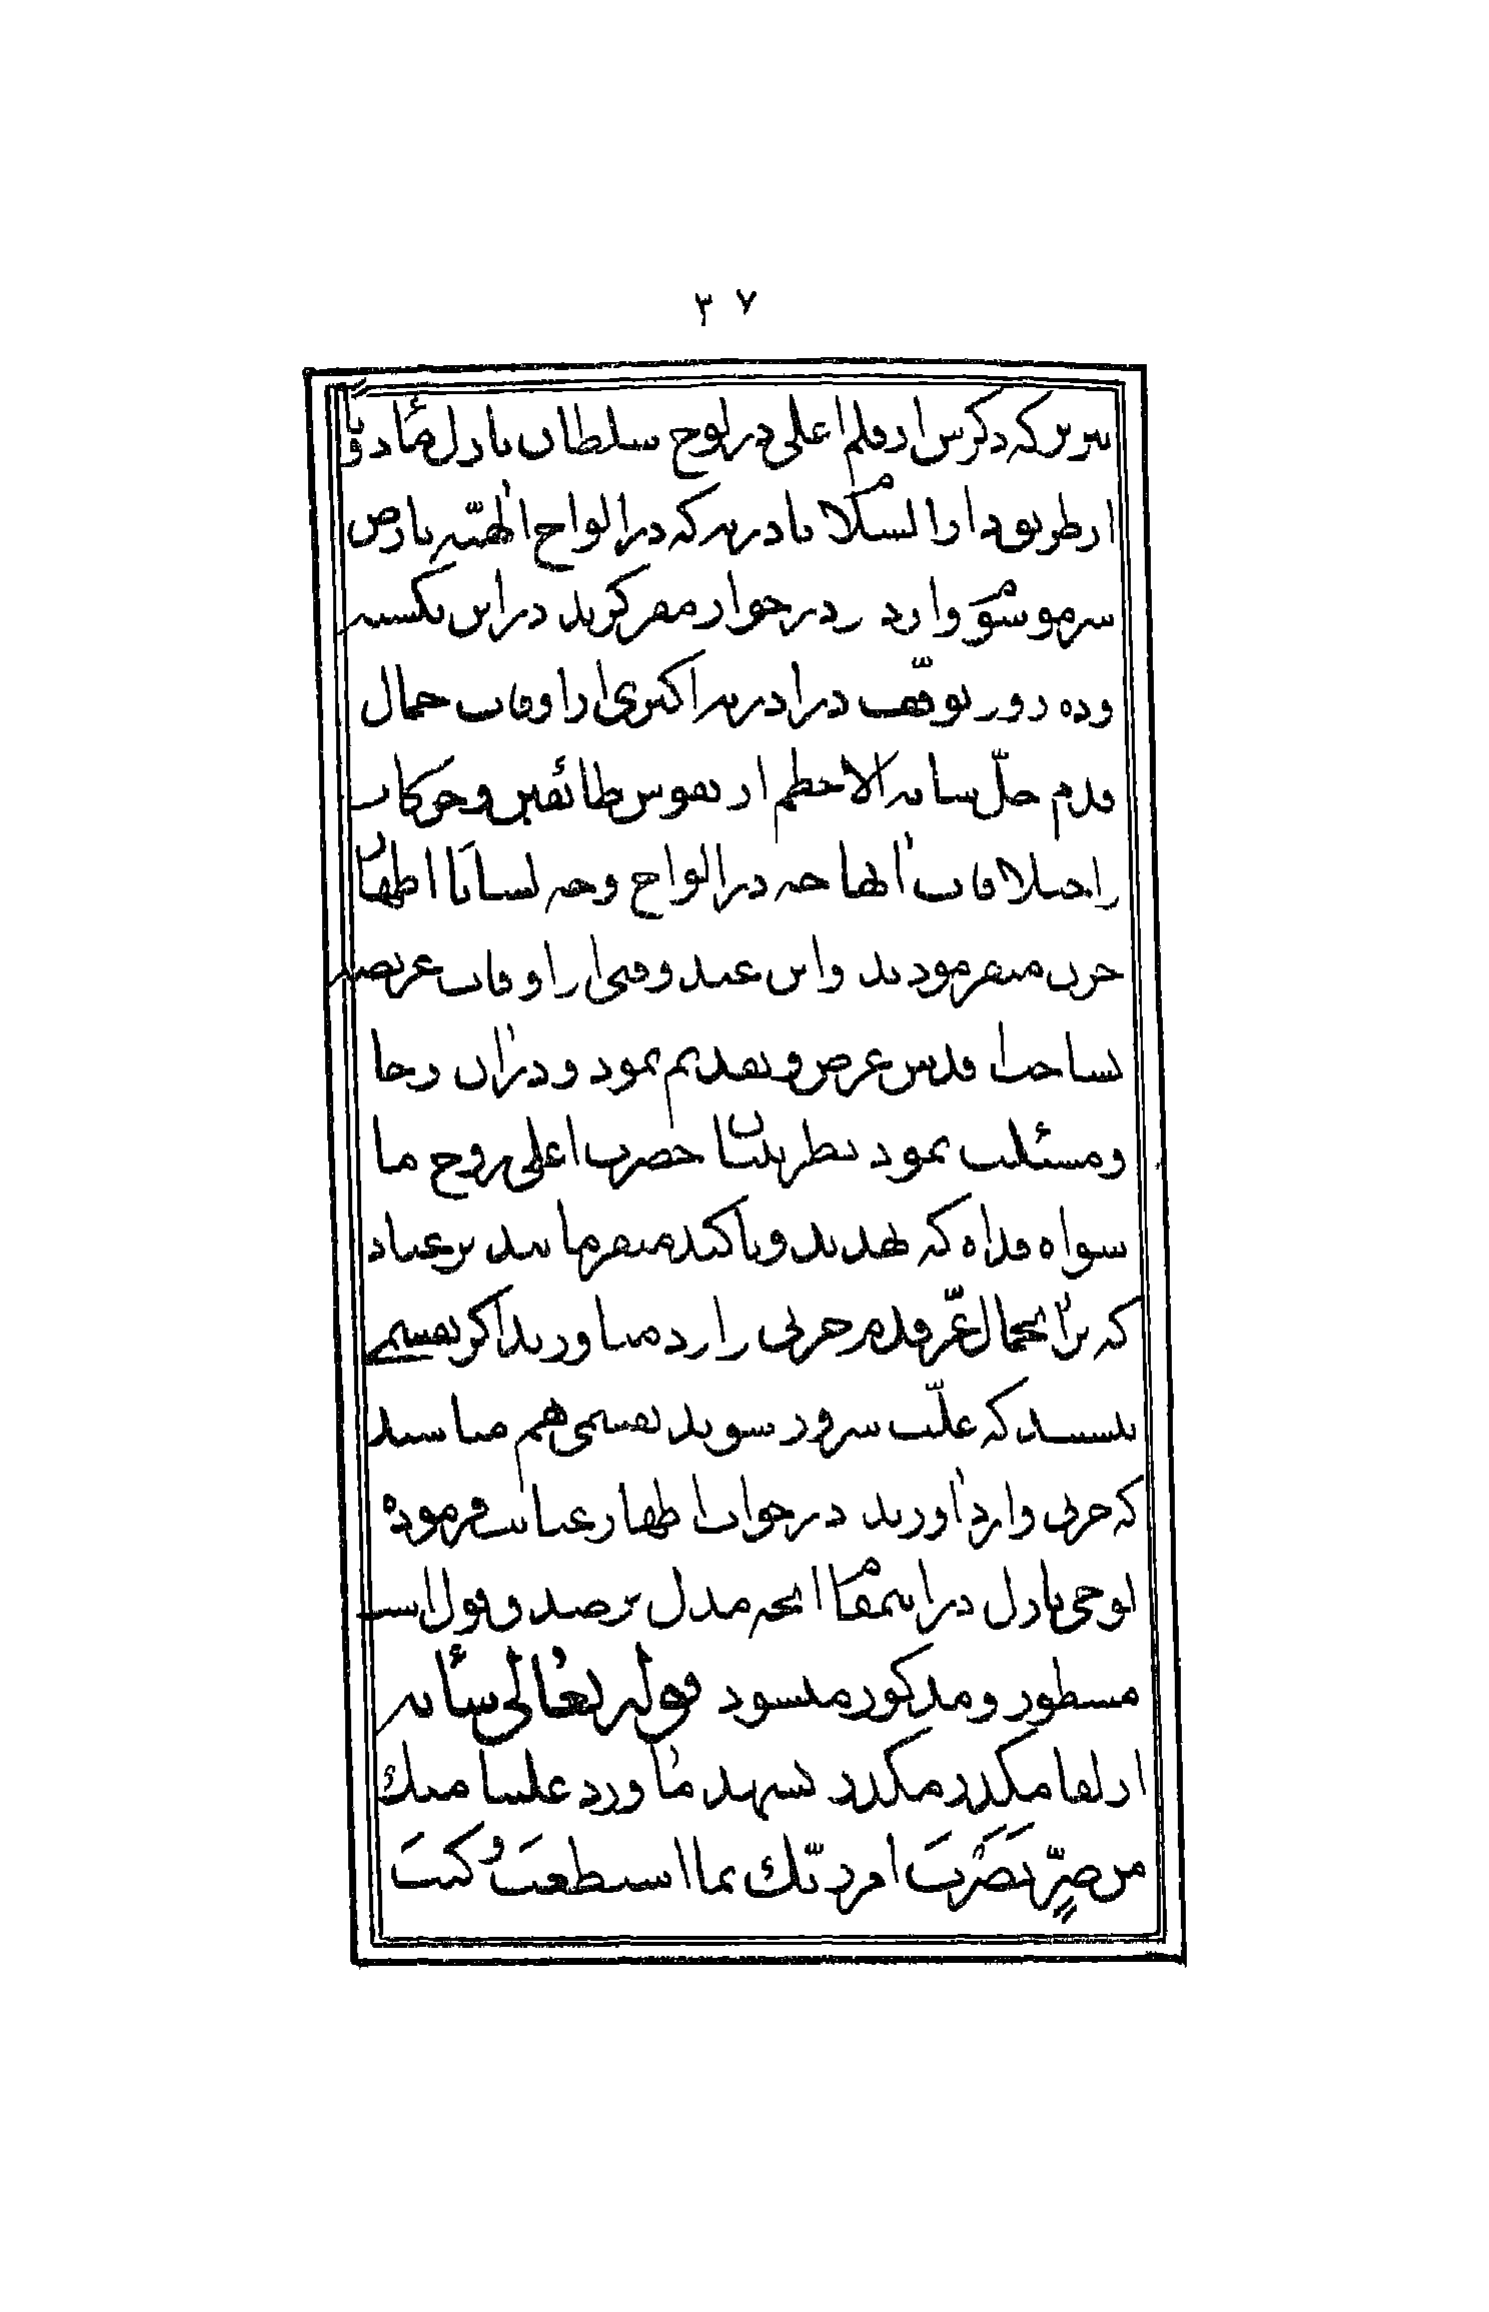 ۳۷
تبریز که ذکرش از قلم اعلی در لوح سلطان نازل شهادت
از طریق دارالسلام بادرنه که در الواح الهیه بارض
سر موسوم وارد و در جوار مقر گزید در این یکسنه
و ده روز توقف در ادرنه اکثری از اوقات جمال
قدم جل شانه الاعظم از نفوس طائفین و حرکات
را ضیه لا قات آنها چه در الواح و چه لسانا اظهار
حزن میفرمودند و این عبد وقتی از اوقات عریضه
بساحت اقدس عرض و تقدیم نمود و در آن رجا
و مسئلت نمود نظر ببیان حضرت اعلی روح ما
سواه فداه که تهدید و تاکید میفرمایند بر عباد
که بر آنجمال عز قدم حزنی وارد میاورید اگر نفسی
نیستید که علت سرور شوید نفسی هم مباشید
که حزنی وارد آورید در جواب اظهار عنایت فرموده
لوحی نازل در اینمقام آنچه مدل بر صدق قول است
مسطور و مذکور میشود قوله تعالی شانه
از لقا مکدر مکدر نشهد ما ورد علینا منك
من ضرّ نصرت امر ربّك بما استطعت و كنت